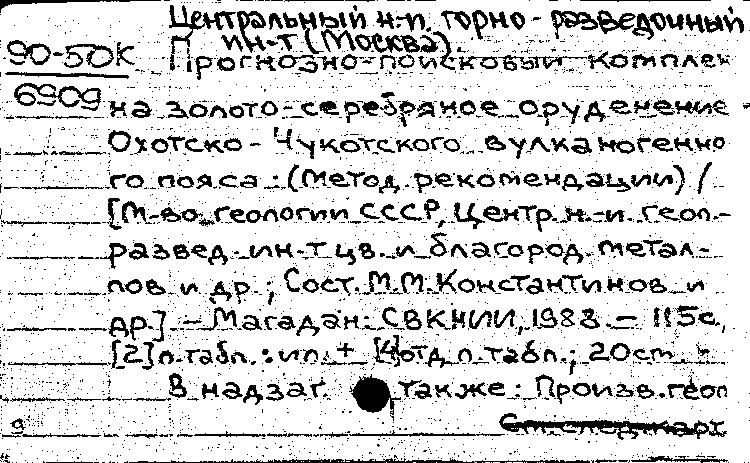 Центральный н-и. горно-разведочный
ин-т (Москва).
90-50К
6909
Прогнозно-поисковый комплек
на золото-серебряное оруденение
Охотско-Чукотского вулканогенно
го пояса: (Метод. рекомендации) /
[М-во геологии СССР, Центр. н.-и. геол.-
развед. ин-т цв. и благород. метал-
лов и др.; Сост. М.М. Константинов и
др.] – Магадан: СВКНИИ, 1988. – 115с,
[2]л. табл. : ил. + [4]отд. л. табл.; 20см.
В надзаг. также: Произв. геол
9
См. след. карт